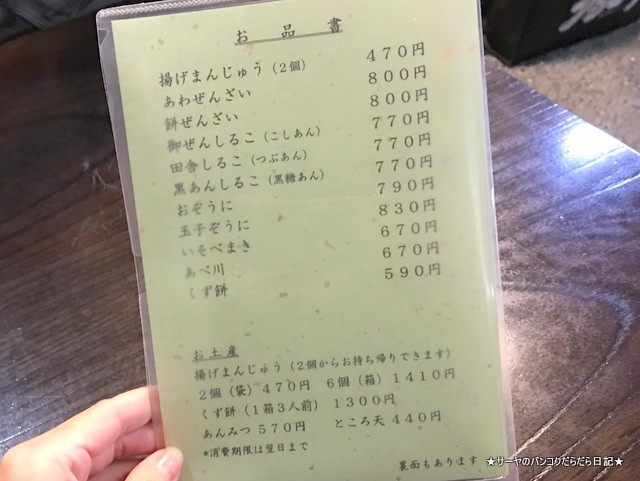 お品書
揚げまんじゅう（２個） ４７０円
あわぜんざい ８００円
餅ぜんざい ８００円
御ぜんしるこ（こしあん） ７７０円
田舎しるこ（つぶあん） ７７０円
黒あんしるこ（黒糖あん） ７７０円
おぞうに ７９０円
玉子ぞうに ８３０円
いそべまき ６７０円
あべ川 ６７０円
くず餅 ５９０円
お土産
揚げまんじゅう（２個からお持ち帰りできます）
２個（袋）４７０円 ６個（箱）１４１０円
くず餅（１箱３人前） １３００円
あんみつ５７０円 ところ天４４０円
*消費期限は翌日まで
裏面もあります
★サーヤのバンコクだらだら日記★